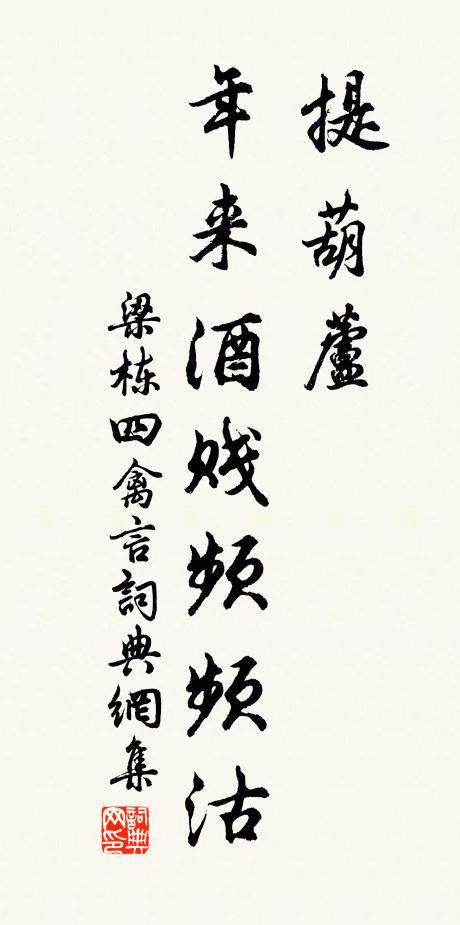 提葫蘆
年来酒贱频频沽
梁栋四禽言詞典網集
詞典网印